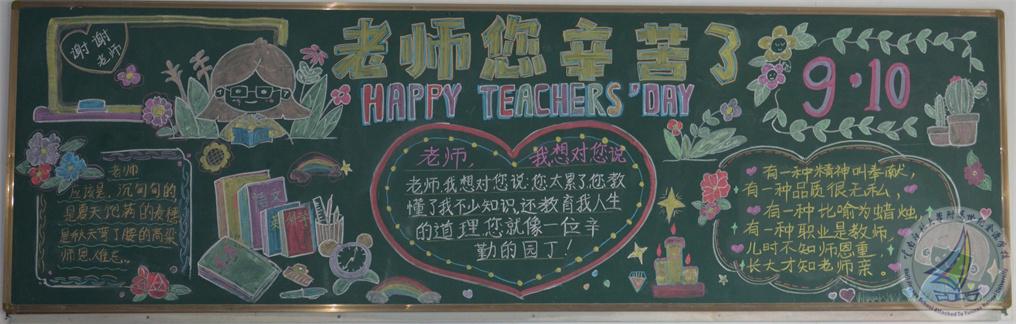 谢谢
老师
老师您辛苦了
HAPPY TEACHERS' DAY
9·10
老师
应该是,沉甸甸的
是夏天饱满的麦穗
是秋天弯了腰的高粱
师恩难忘…
语文
老师, 我想对您说
老师,我想对您说:您太累了,您教
懂了我不少知识,还教育我人生
的道理,您就像一位辛
勤的园丁!
有一种精神叫奉献,
有一种品质很无私,
有一种比喻为蜡烛,
有一种职业是教师,
儿时不知师恩重,
长大才知老师亲.